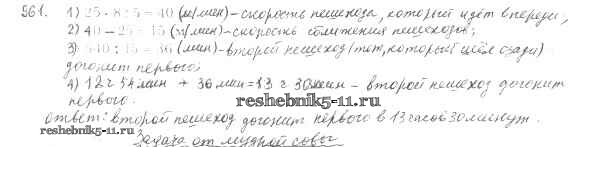 961. 1) 25 · 8 : 5 = 40 (м/мин) - скорость пешехода, который идёт впереди;
2) 40 - 25 = 15 (м/мин) - скорость сближения пешеходов;
3) 540 : 15 = 36 (мин) - второй пешеход (тот, который шёл сзади)
догонит первого;
4) 12 ч 54 мин + 36 мин = 13 ч 30 мин - второй пешеход догонит
первого.
reshebnik5-11.ru
ответ: второй пешеход догонит первого в 13 часов 30 минут.
reshebnik5-11.ru
Задача от мудрой совы